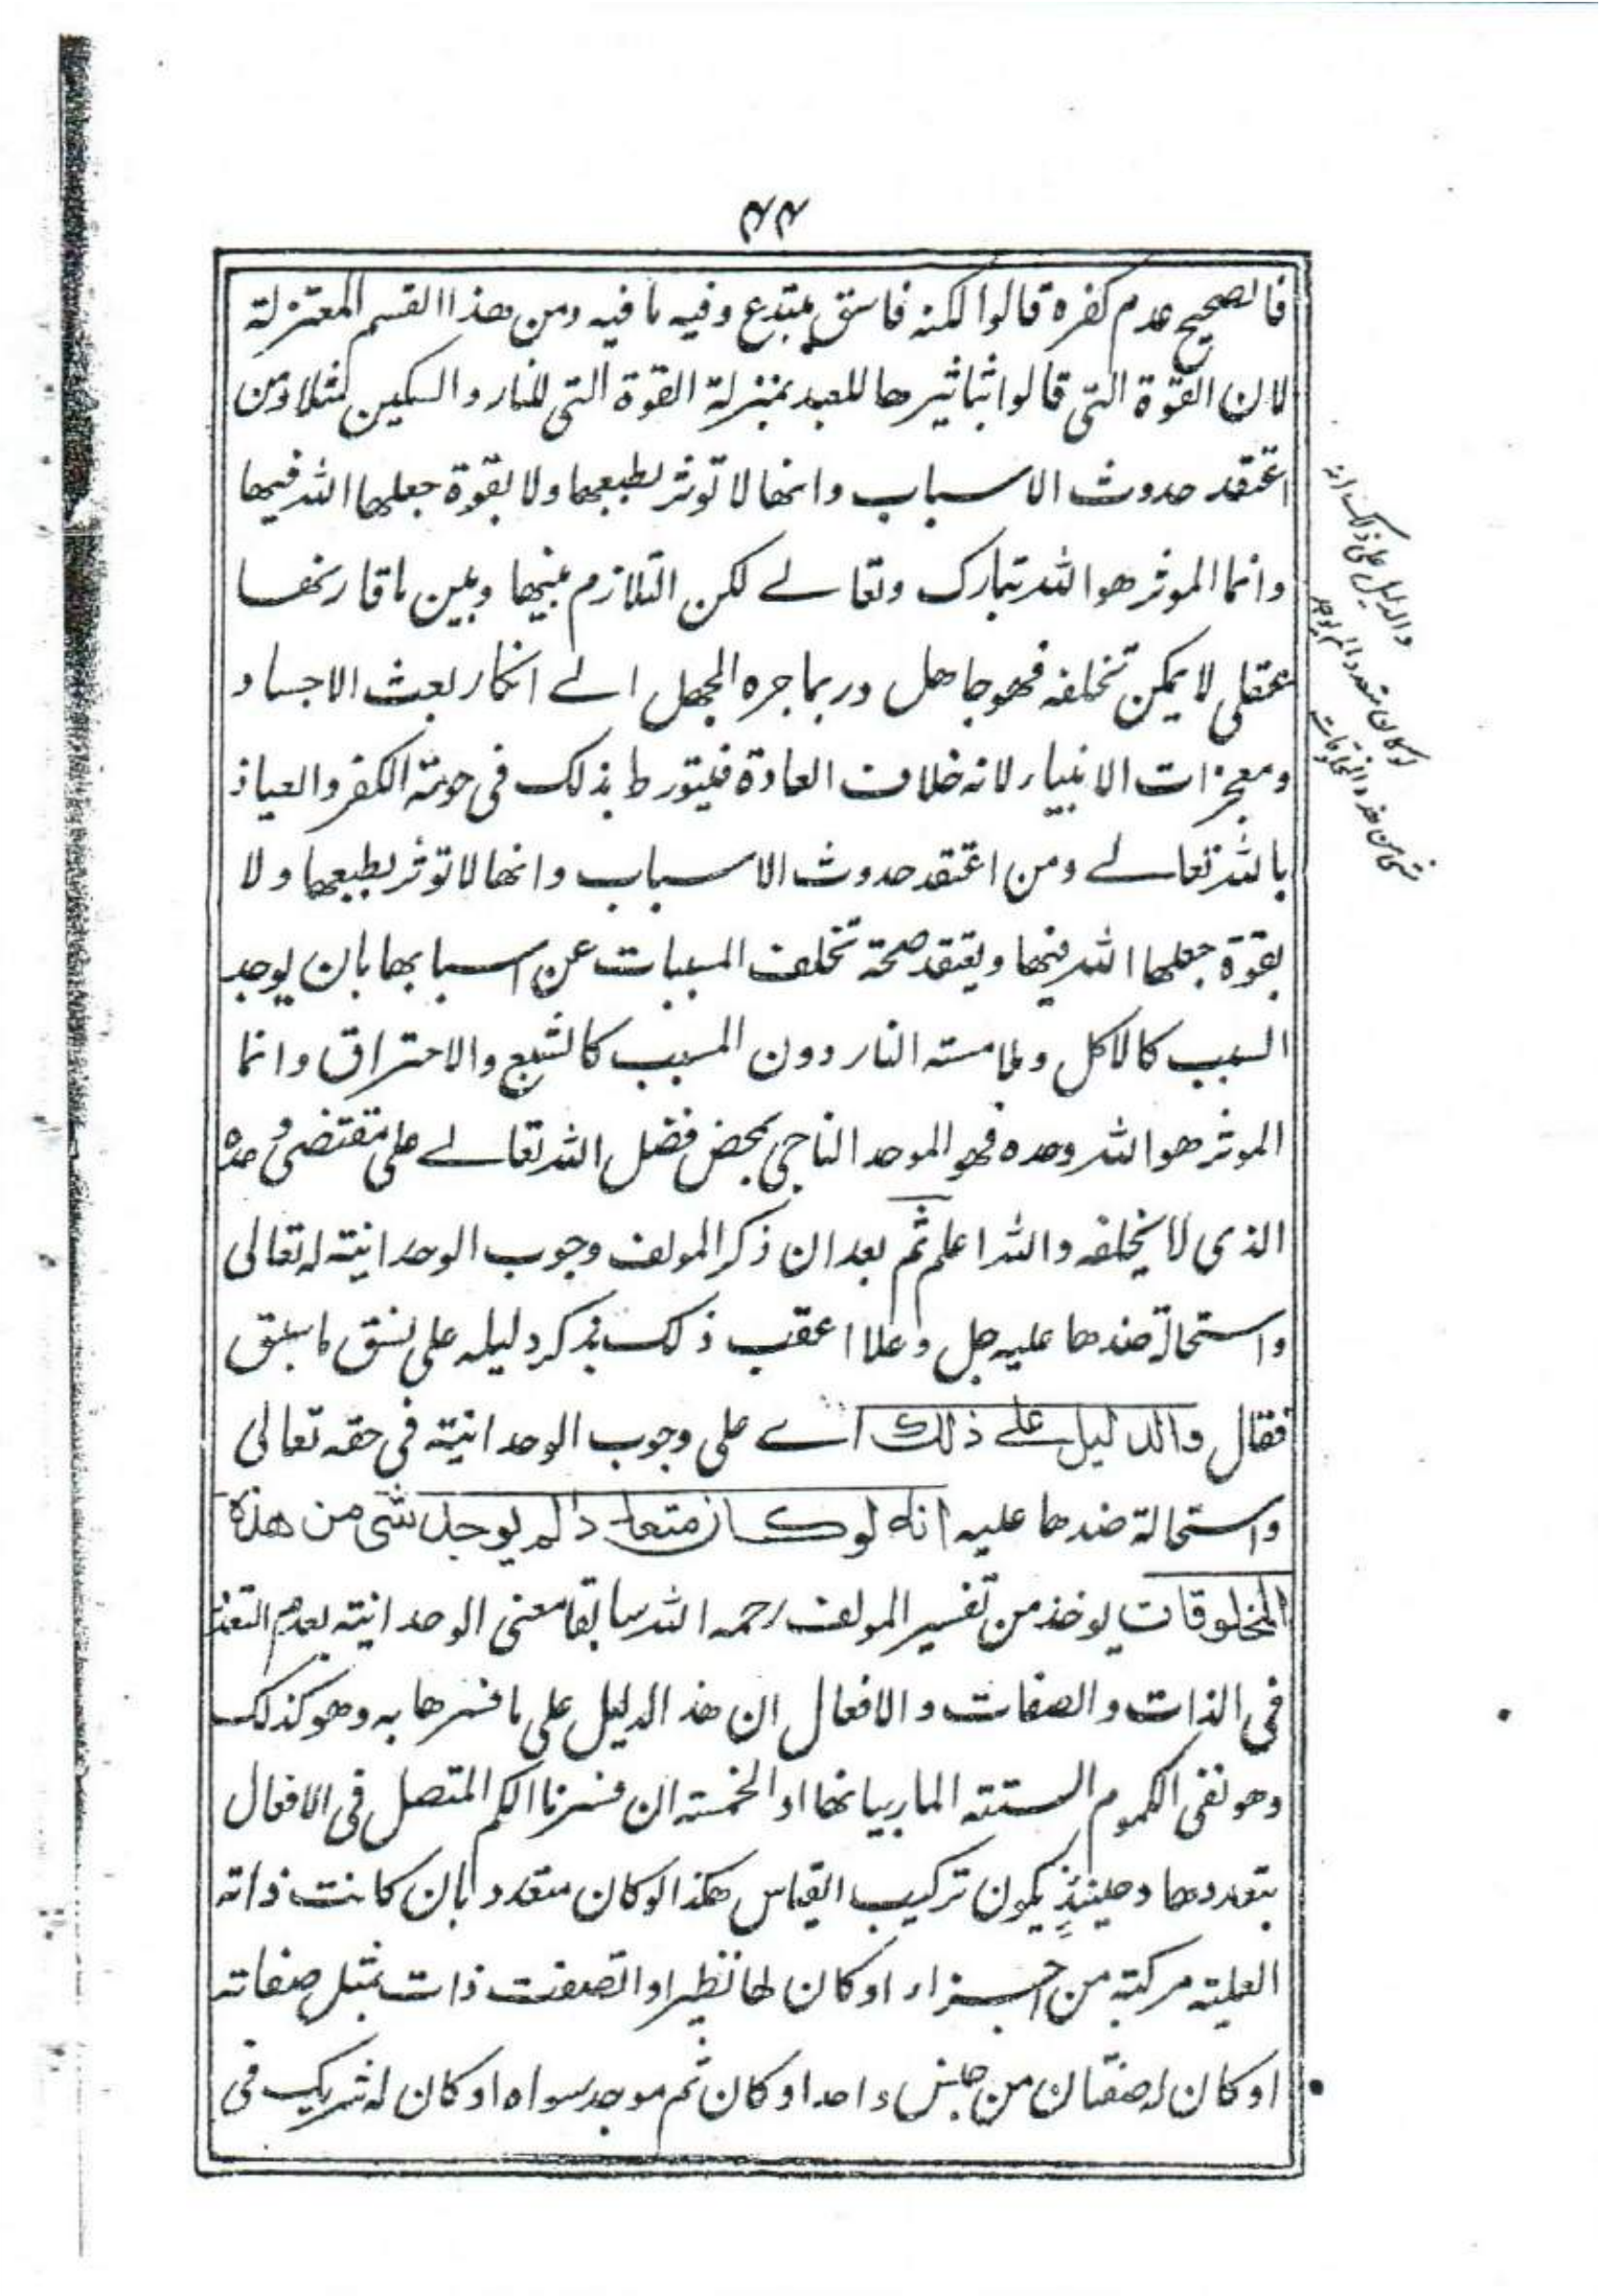 ۴۴
فالصحيح عدم كفره قالوا لكنه فاسق مبتدع وفيه ما فيه ومن هذا القسم المعتزلة
لان القوة التي قالوا بتاثيرها للعبد بمنزلة القوة التي للنار والسكين مثلا ومن
اعتقد حدوث الاسباب وانها لا توثر بطبعها ولا بقوة جعلها الله فيها
وانما الموثر هو الله تبارك وتعالے لكن التلازم بينها وبين ما قارنها
عقلي لا يمكن تخلفه فهو جاهل وربما جره الجهل الے انكار بعث الاجساد
ومعجزات الانبياء لانه خلاف العادة فيتورط بذلك في حومة الكفر والعياذ
بالله تعالے ومن اعتقد حدوث الاسباب وانها لا توثر بطبعها ولا
بقوة جعلها الله فيها ويعتقد صحة تخلف المسببات عن اسبابها بان يوجد
السبب كالاكل وملامسته النار دون المسبب كالشبع والاحتراق وانما
الموثر هو الله وحده فهو الموحد الناجي بمحض فضل الله تعالے على مقتضى وعده
الذي لا يخلفه والله اعلم ثم بعد ان ذكر المولف وجوب الوحدانيته له تعالى
واستحالة ضدها عليه جل وعلا اعقب ذلك بذكر دليله على نسق ما سبق
فقال والدليل علے ذلك اے على وجوب الوحدانيته في حقه تعالى
واستحالة ضدها عليه انه لو كان متعددا لم يوجد شي من هذه
المخلوقات يوخذ من تفسير المولف رحمه الله سابقا معنى الوحدانيته بعدم التعدد
في الذات والصفات والافعال ان هذ الدليل على ما فسرها به وهو كذلك
وهو نفي الكموم الستته المار بيانها او الخمسته ان فسرنا الكم المتصل في الافعال
بتعددها وحينئذٍ يكون تركيب القياس هكذا لو كان متعددا بان كانت ذاته
العليته مركبة من اجزاء او كان لها نظير او اتصفت ذات بمثل صفاته
او كان له صفتان من جنس واحد او كان ثم موجد سواه او كان له شريك في
والدليل على ذلك انه
لو كان متعددا لم يوجد
شي من هذه المخلوقات